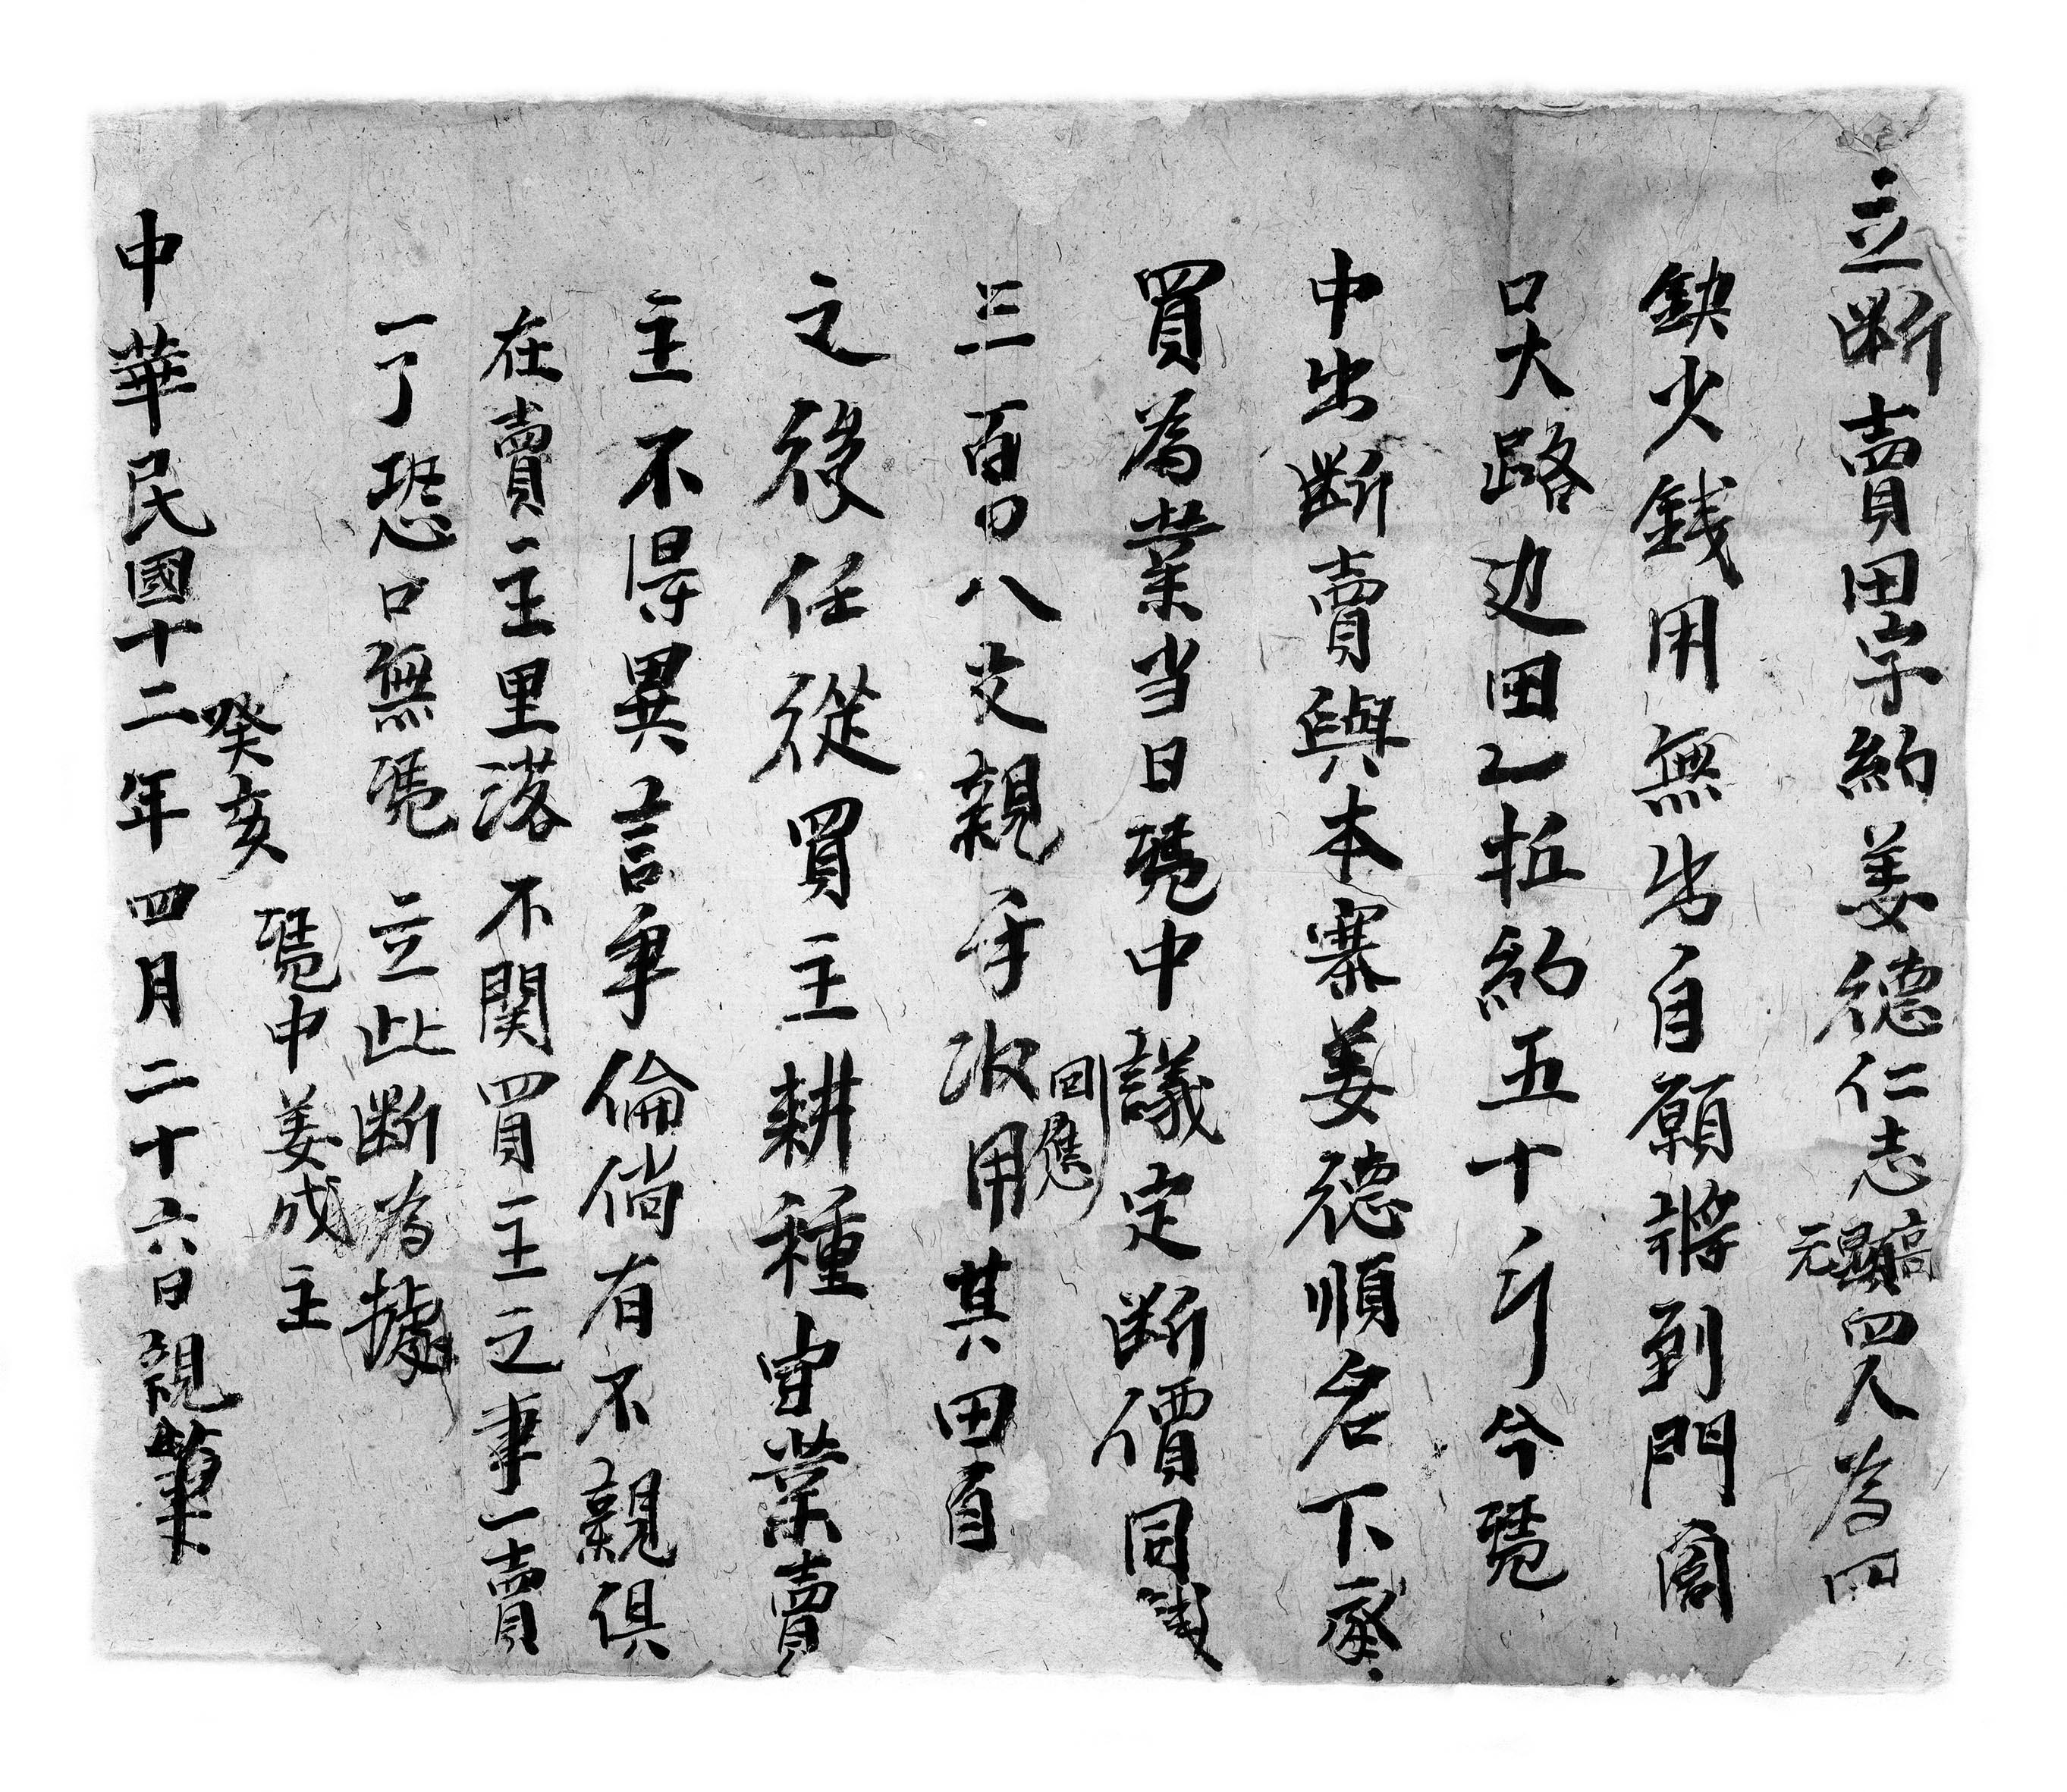 立断賣田字約姜德仁志高顕元四人為因
缺少錢用無出自願將到門闾
口大路边田乙坵約五十斤今凴
中出断賣與本寨姜德順名下承
買為業当日凴中議定断價同錢
三百〇八文親手收回應用其田自
之後任從買主耕種守業賣
主不得異言爭倫倘有不親俱
在賣主里落不関買主之事一賣
一了恐口無凴 立此断為據
凴中姜成主
癸亥
中華民國十二年四月二十六日親筆